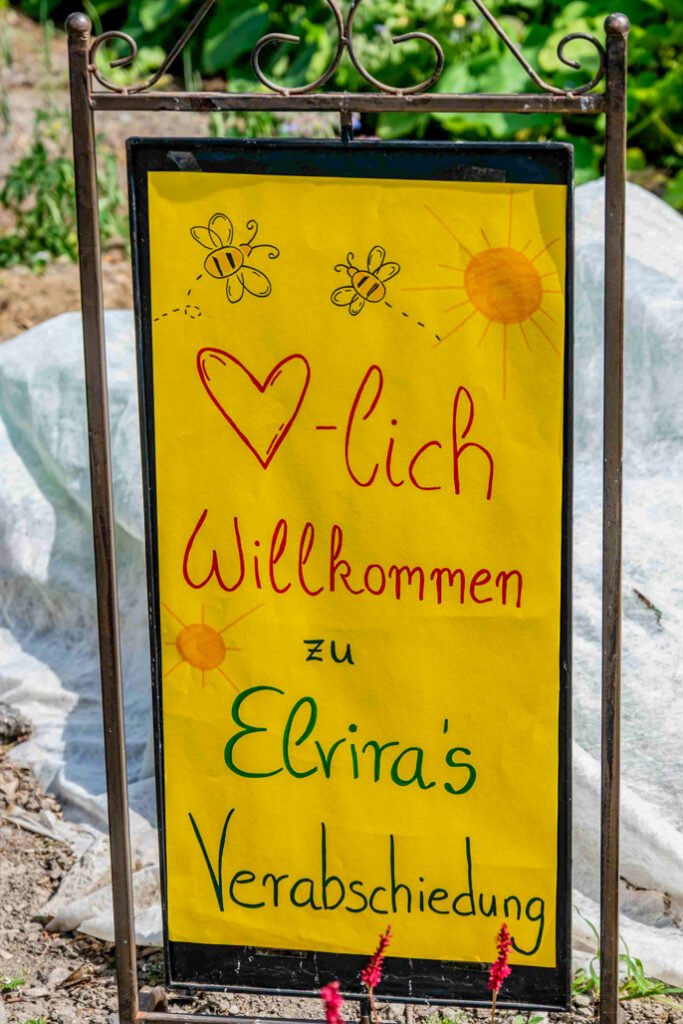 ♡-lich
Willkommen
zu
Elvira's
Verabschiedung